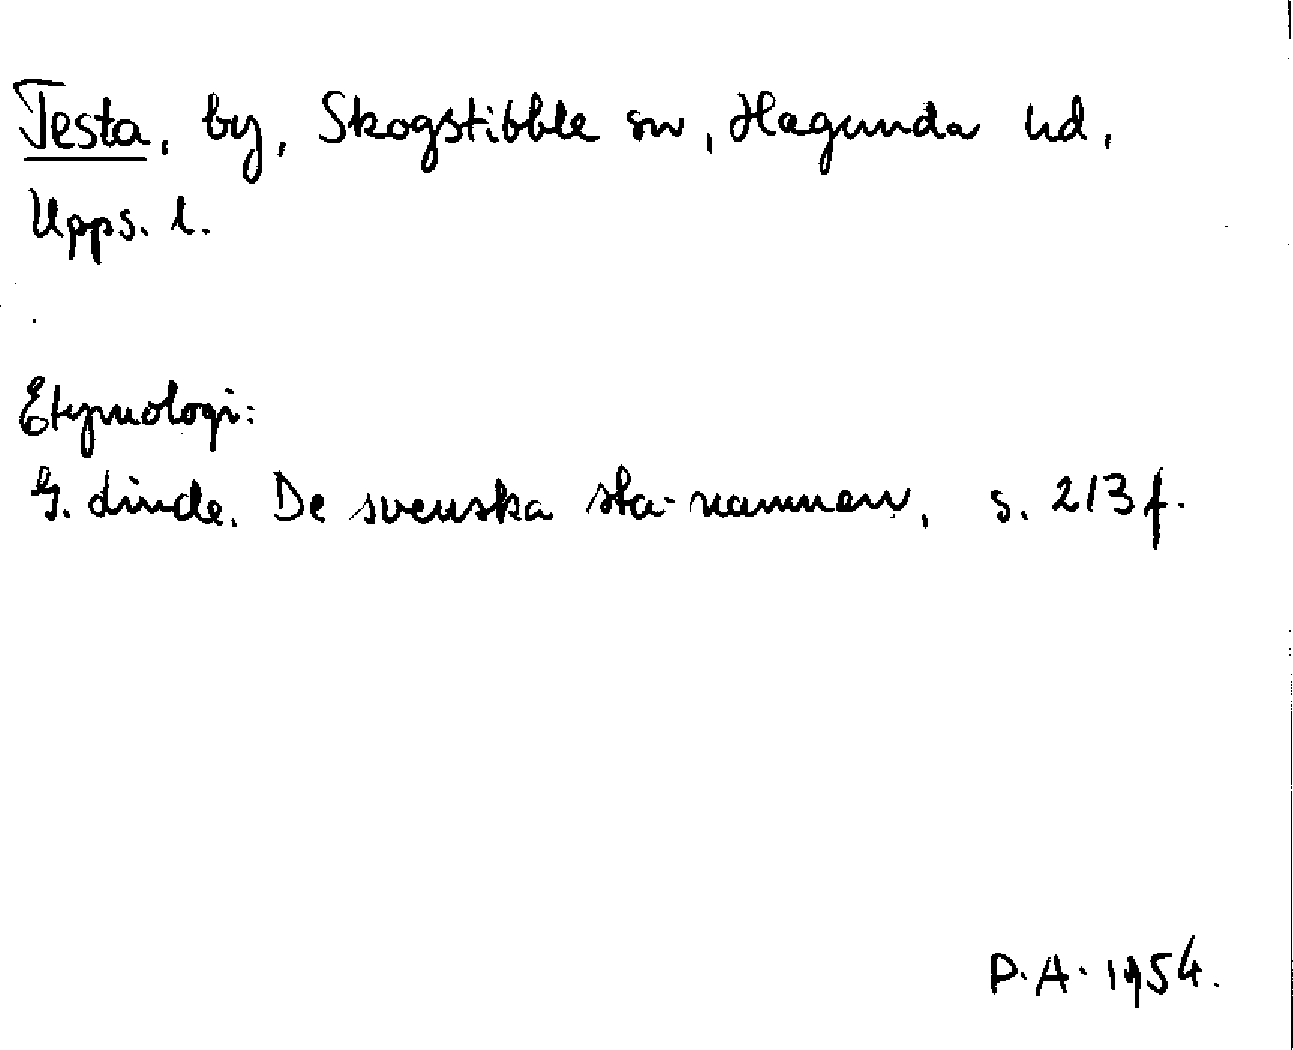 Testa, by, Skogstibble sn, Hagunda hd,
Upps. l.
Etymologi:
G. Linde. De svenska sta-namnen, s. 213 f.
P.A. 1954.